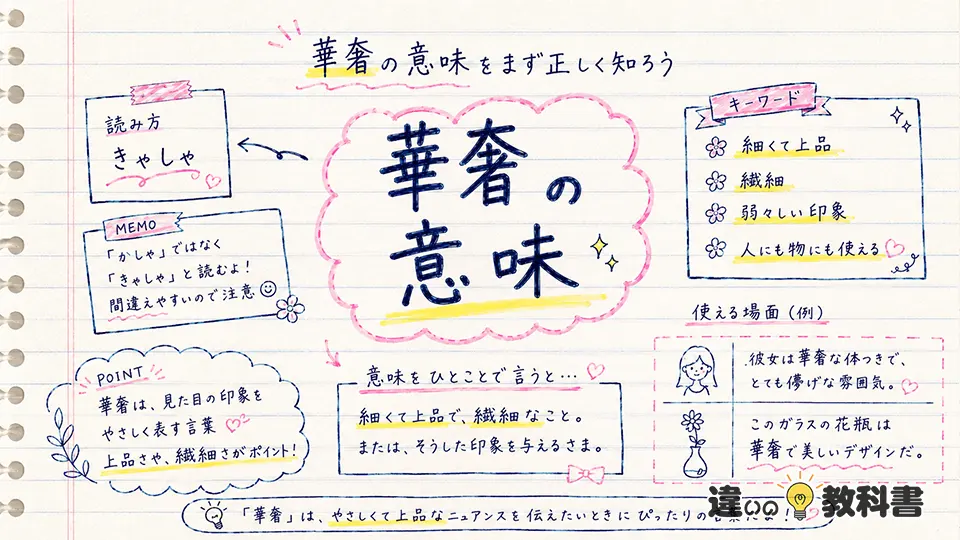 華奢の意味をまず正しく知ろう
読み方
きゃしゃ
華奢の
意味
キーワード
細くて上品
繊細
弱々しい印象
人にも物にも使える
MEMO
「かしゃ」ではなく
「きゃしゃ」と読むよ！
間違えやすいので注意
使える場面（例）
彼女は華奢な体つきで、
とても儚げな雰囲気。
このガラスの花瓶は
華奢で美しいデザインだ。
POINT
華奢は、見た目の印象を
やさしく表す言葉
上品さや、繊細さがポイント！
意味をひとことで言うと…
細くて上品で、繊細なこと。
または、そうした印象を与えるさま。
「華奢」は、やさしくて上品なニュアンスを伝えたいときにぴったりの
違いの教科書